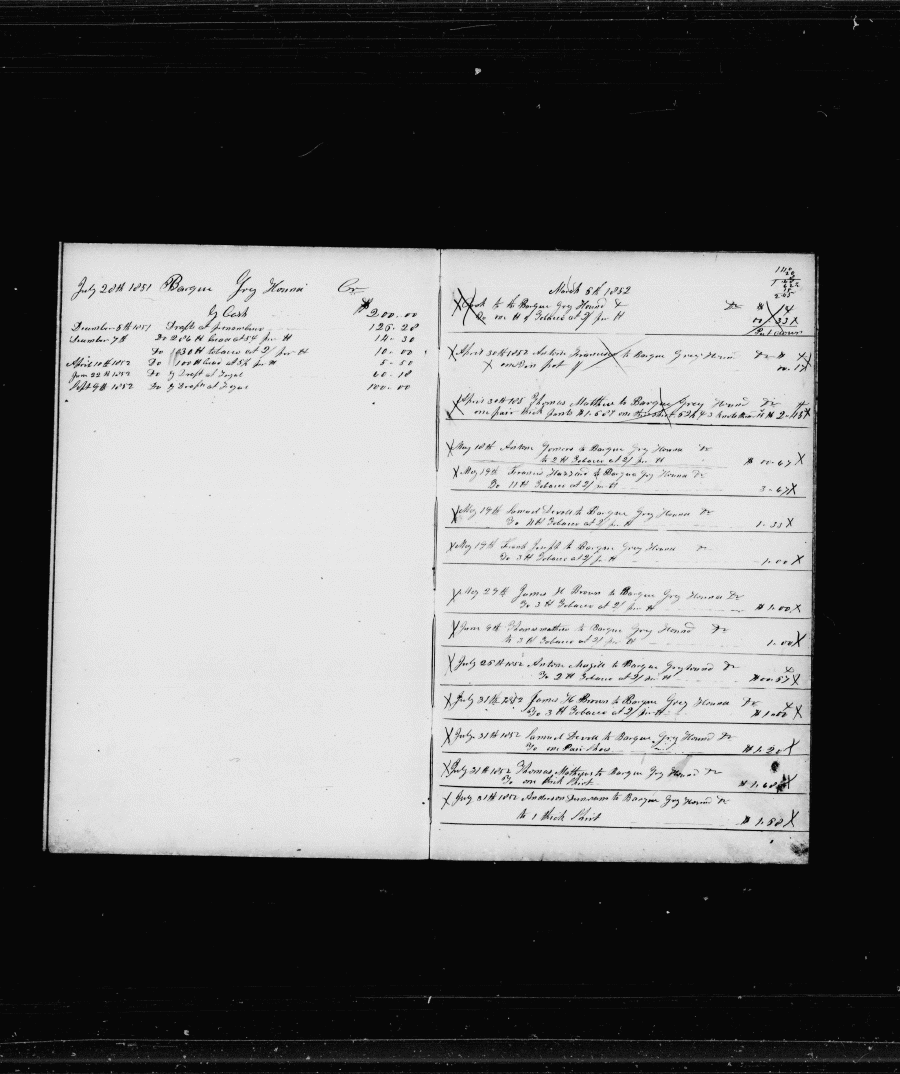 July 28th 1851 Barque Grey Hound Cr
By Cash $200.00
December 5th 1851 Draft at Pernambuco 126-28
December 7th Do 286 lb bread at 5¢ per lb 14-30
Do 30 lb tobacco at 2/ per lb 10-00
April 10th 1852 Do 100 lb bread at 5½ per lb 5-50
June 22th 1852 Do By Draft at Fayal 60-18
Sept 9th 1852 Do By Draft at Fayal 100-00
March 5th 1852
Cook to the Barque Grey Hound Dr $ 14
Do one lb of Tobacco at 2/ per lb 00/33 X
Put down
April 30th 1852 Antone to Barque Grey Hound Dr $
X one Pan pot 00.17
April 30th 185 Thomas Matthew to Barque Grey Hound Dr $
one pair thick pants $1.50 one
May 18th Antone to Barque Grey Hound Dr
to 2 lb Tobacco at 2/ per lb $ 00-67 X
X May 19th Francis to Barque Grey Hound Dr
Do 11 lb Tobacco at 2/ per lb 3-67 X
X May 19th Samuel Devoll to Barque Grey Hound Dr
To 4 lb Tobacco at 2/ per lb 1-33 X
X May 19th Frank Joseph to Barque Grey Hound Dr
Do 3 lb Tobacco at 2/ per lb 1.00 X
X May 29th James H Brown to Barque Grey Hound Dr
To 3 lb Tobacco at 2/ per lb $1.00 X
X June 9th Thomas mathew to Barque Grey Hound Dr
to 3 lb Tobacco at 2/ per lb 1.00 X
X July 25th 1852 Antone to Barque Greyhound Dr
To 2 lb Tobacco at 2/ per lb $00.67 X
X July 31th 1852 James H Brown to Barque Grey Hound Dr
To 3 lb Tobacco at 2/ per lb $1.00 X
X July 31th 1852 Samuel Devoll to Barque Grey Hound Dr
To one Pair Shoes $1.20 X
X July 31th 1852 Thomas Mathew to Barque Grey Hound Dr
To one thick Shirt $1.68 X
X July 31th 1852 Anderson to Barque Grey Hound Dr
to 1 thick Shirt $1.58 X